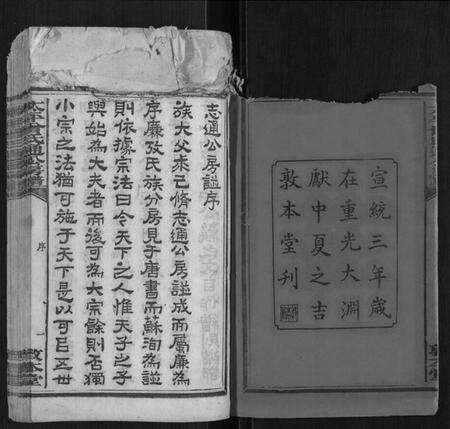 宣統三年歲
在重光大淵
獻中夏之吉
敦本堂刊
志通公房諡序
族大父来己脩志通公房諡成而屬廉為
序廉攷氏族分房見于唐書而蘇洵為諡
則依據宗法曰今天下之人惟天子之子
與始為大夫者而後可為大宗餘則否獨
小宗之法猶可施于天下是以可㠯五世
序
敦本堂